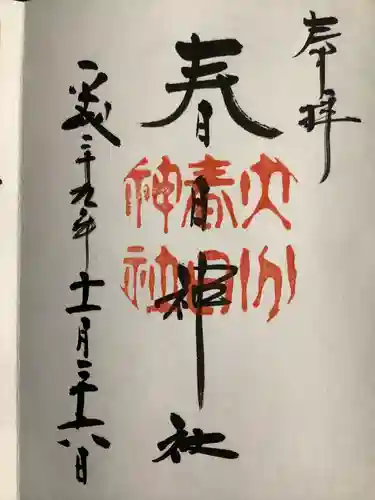 奉拝
春日神社
大分
春日
神社
平成二十九年十一月二十六日